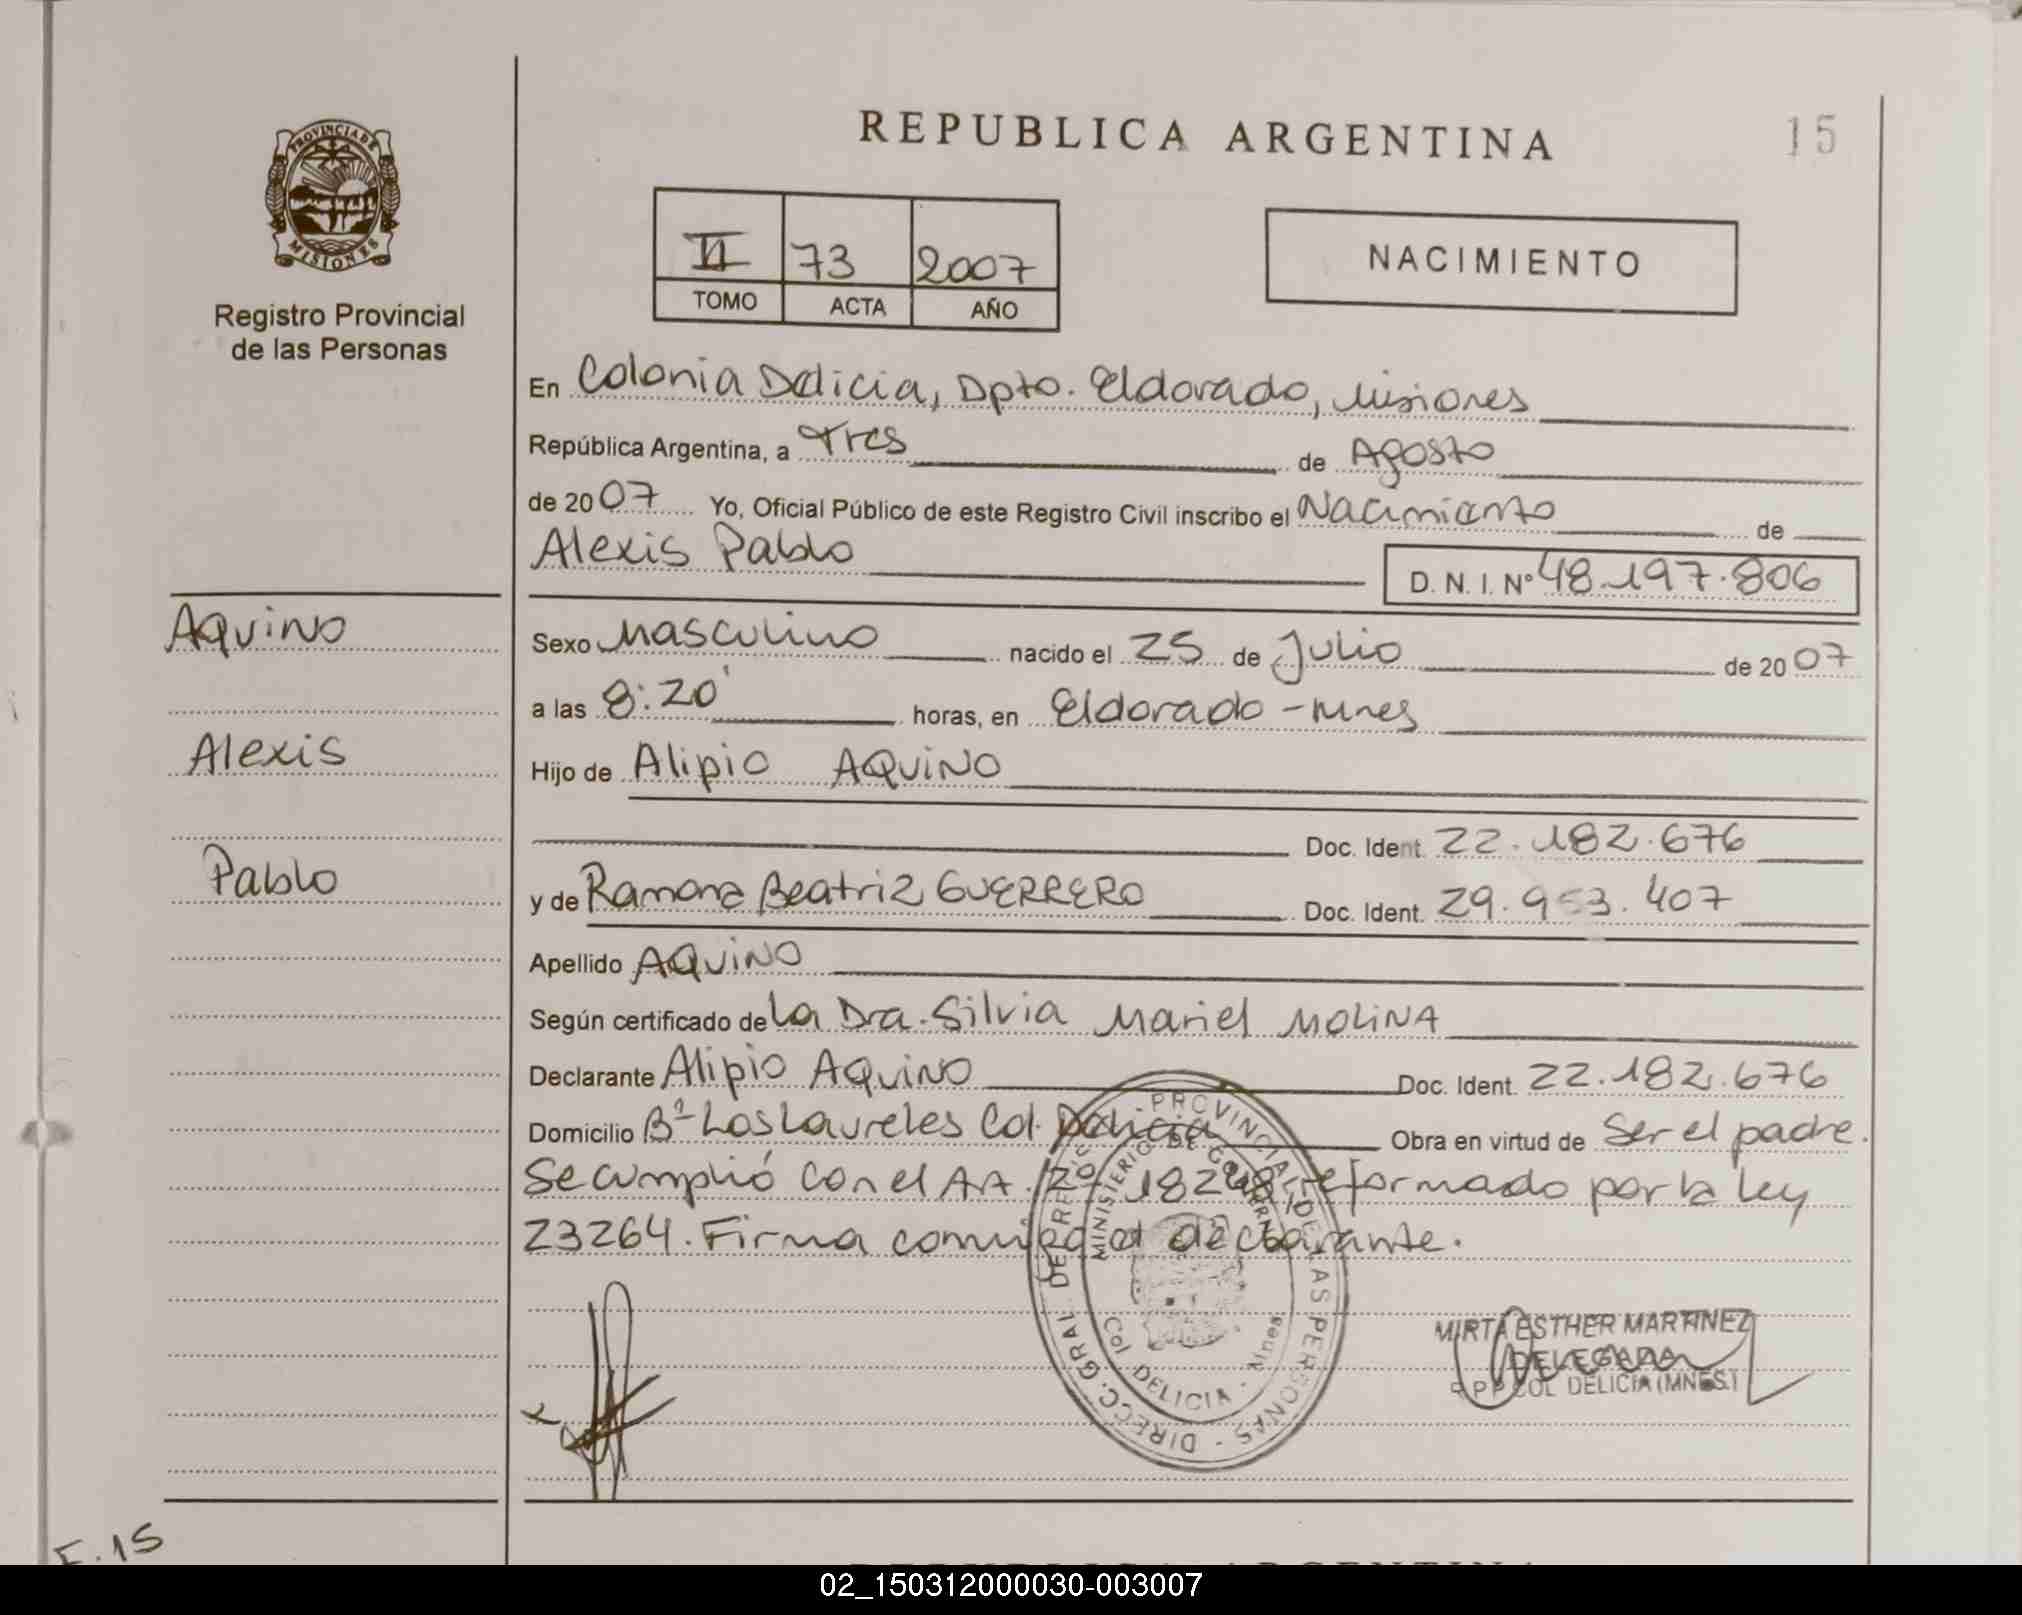 REPUBLICA ARGENTINA
15
PROVINCIA DE
MISIONES
Registro Provincial
de las Personas
II 73 2007
TOMO ACTA AÑO
NACIMIENTO
En Colonia Delicia, Dpto. Eldorado, Misiones
República Argentina, a Tres de Agosto
de 2007 Yo, Oficial Público de este Registro Civil inscribo el Nacimiento de
Alexis Pablo
D. N. I. Nº 48.197.806
Aquino
Alexis
Pablo
Sexo Masculino nacido el 25 de Julio de 2007
a las 8:20' horas, en Eldorado - Mnes
Hijo de Alipio AQUINO
Doc. Ident. 22.182.676
y de Ramona Beatriz GUERRERO Doc. Ident. 29.953.407
Apellido AQUINO
Según certificado de La Dra. Silvia Mariel MOLINA
Declarante Alipio AQUINO Doc. Ident. 22.182.676
Domicilio Bº Los Laureles Col. Delicia Obra en virtud de Ser el padre.
Se cumplió con el Art. 18248, reformado por la Ley
23264. Firma conmigo el declarante.
DIRECC. GRAL. DE REG. PROVINCIAL DE LAS PERSONAS
MINISTERIO DE GOBIERNO
Col DELICIA - Mnes
MIRTA ESTHER MARTINEZ
DELEGADA
R P P COL DELICIA (MNES.)
F. 15
REPUBLICA ARGENTINA
02_150312000030-003007